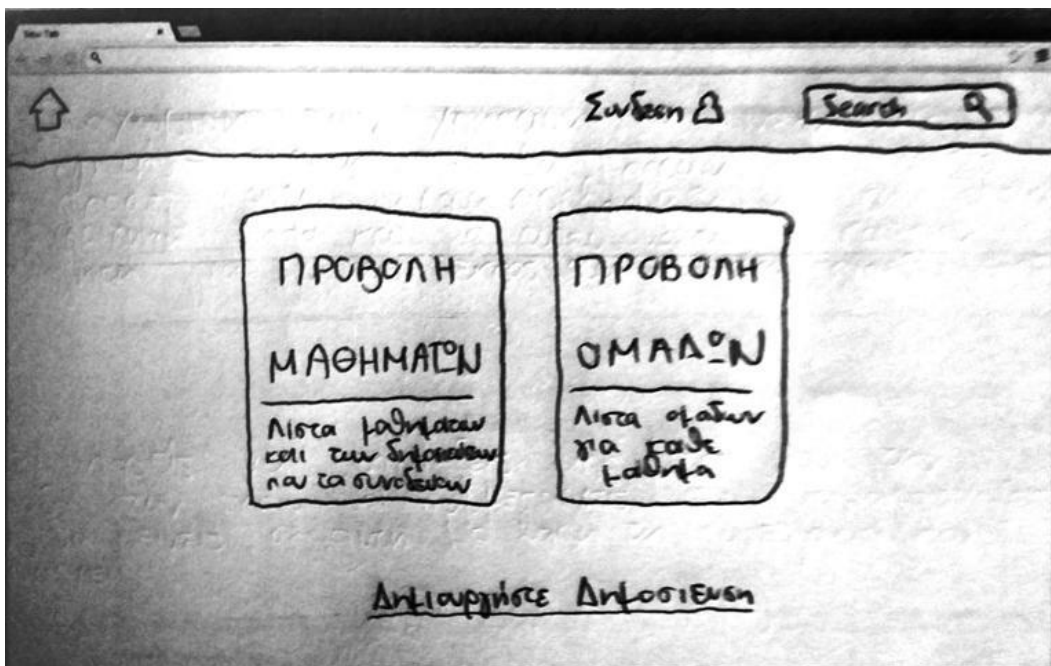 New Tab
Συνδεση
Search
ΠΡΟΒΟΛΗ
ΜΑΘΗΜΑΤΩΝ
Λιστα μαθηματων
και των δημοσιεύσεων
που τα συνοδευουν
ΠΡΟΒΟΛΗ
ΟΜΑΔΩΝ
Λιστα ομαδων
για καθε
μαθημα
Δημιουργήστε Δημοσιευση